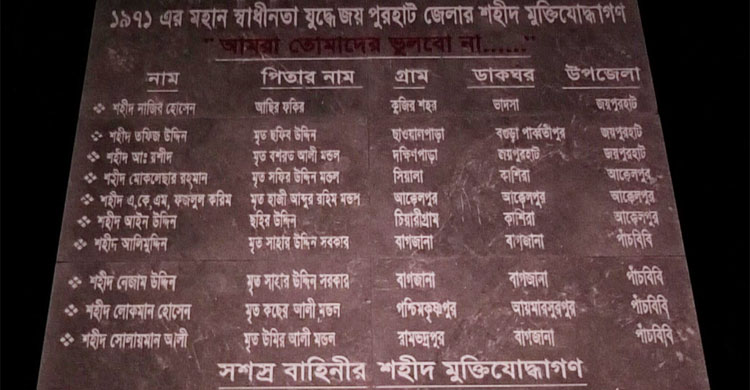 ১৯৭১ এর মহান স্বাধীনতা যুদ্ধে জয় পুরহাট জেলার শহীদ মুক্তিযোদ্ধাগণ
"আমরা তোমাদের ভুলবো না......"
নাম পিতার নাম গ্রাম ডাকঘর উপজেলা
শহীদ নাজির হোসেন আছির ফকির কুজির শহর ভাদসা জয়পুরহাট
শহীদ তফিজ উদ্দিন মৃত ছফির উদ্দিন ছাওয়ালপাড়া বগুড়া পার্ব্বতীপুর জয়পুরহাট
শহীদ আঃ রশীদ মৃত বশরত আলী মন্ডল দক্ষিণপাড়া জয়পুরহাট জয়পুরহাট
শহীদ মোকলেছার রহমান মৃত সফির উদ্দিন মন্ডল সিয়ালা কাশিরা আক্কেলপুর
শহীদ এ,কে,এম, ফজলুল করিম মৃত হাজী আব্দুর রহিম মন্ডল আক্কেলপুর আক্কেলপুর আক্কেলপুর
শহীদ আইন উদ্দিন ছহির উদ্দিন চিয়ারীগ্রাম কাশিরা আক্কেলপুর
শহীদ আলিমুদ্দিন মৃত সাহার উদ্দিন সরকার বাগজানা বাগজানা পাঁচবিবি
শহীদ নেজাম উদ্দিন মৃত সাহার উদ্দিন সরকার বাগজানা বাগজানা পাঁচবিবি
শহীদ লোকমান হোসেন মৃত কছের আলী মন্ডল পশ্চিমকৃষ্ণপুর আয়মারসুরপুর পাঁচবিবি
শহীদ সোলায়মান আলী মৃত উমির আলী মন্ডল রামভদ্রপুর বাগজানা পাঁচবিবি
সশস্র বাহিনীর শহীদ মুক্তিযোদ্ধাগণ